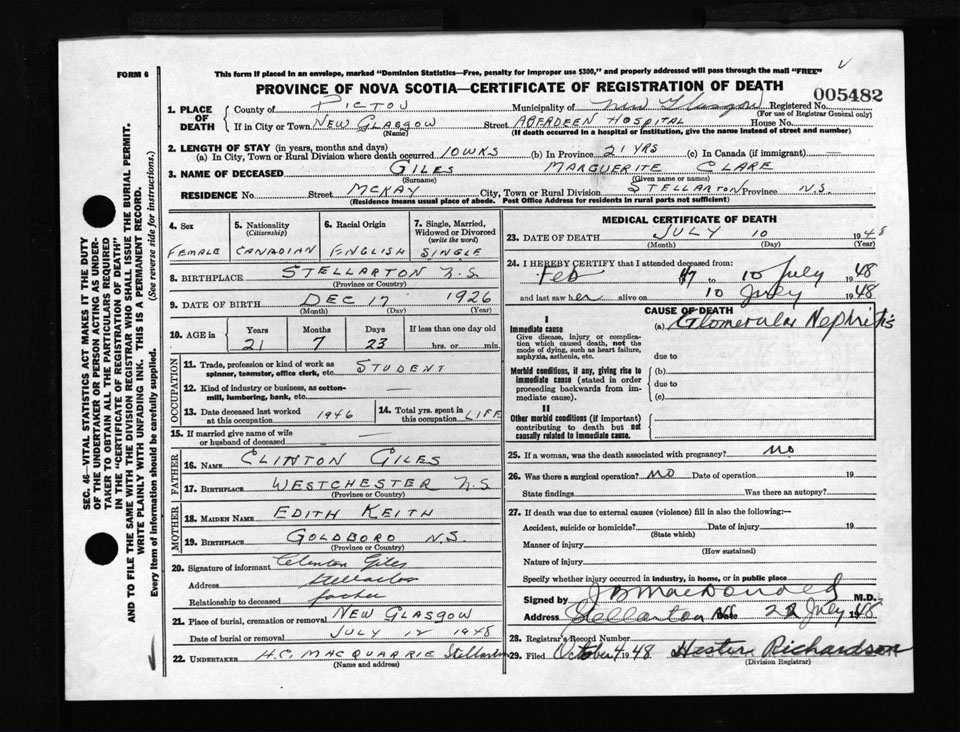 FORM 6
This form if placed in an envelope, marked "Dominion Statistics—Free, penalty for improper use $300," and properly addressed will pass through the mail "FREE"
PROVINCE OF NOVA SCOTIA—CERTIFICATE OF REGISTRATION OF DEATH
005482
1. PLACE OF DEATH
County of PICTOU Municipality of New Glasgow Registered No.
(For use of Registrar General only)
If in City or Town NEW GLASGOW Street ABERDEEN HOSPITAL House No.
(Name) (If death occurred in a hospital or institution, give the name instead of street and number)
2. LENGTH OF STAY (in years, months and days)
(a) In City, Town or Rural Division where death occurred 10 WKS (b) In Province 21 YRS (c) In Canada (if immigrant) —
3. NAME OF DECEASED GILES MARGUERITE CLARE
(Surname) (Given name or names)
RESIDENCE No. Street MCKAY City, Town or Rural Division STELLARTON Province N.S.
(Residence means usual place of abode. Post Office Address for residents in rural parts not sufficient)
4. Sex FEMALE
5. Nationality (Citizenship) CANADIAN
6. Racial Origin ENGLISH
7. Single, Married, Widowed or Divorced (write the word) SINGLE
8. BIRTHPLACE STELLARTON N.S
(Province or Country)
9. DATE OF BIRTH DEC 17 1926
(Month) (Day) (Year)
10. AGE in Years Months Days If less than one day old
21 7 23 hrs. or min.
OCCUPATION
11. Trade, profession or kind of work as spinner, teamster, office clerk, etc. STUDENT
12. Kind of industry or business, as cotton-mill, lumbering, bank, etc. —
13. Date deceased last worked at this occupation 1946
14. Total yrs. spent in this occupation LIFE
15. If married give name of wife or husband of deceased —
FATHER
16. NAME CLINTON GILES
17. BIRTHPLACE WESTCHESTER N.S
(Province or Country)
MOTHER
18. MAIDEN NAME EDITH KEITH
19. BIRTHPLACE GOLDBORO N.S.
(Province or Country)
20. Signature of informant Clinton Giles
Address Stellarton
Relationship to deceased father
21. Place of burial, cremation or removal NEW GLASGOW
Date of burial or removal JULY 12 1948
22. UNDERTAKER H.C. MACQUARRIE Stellarton
(Name and address)
MEDICAL CERTIFICATE OF DEATH
23. DATE OF DEATH JULY 10 1948
(Month) (Day) (Year)
24. I HEREBY CERTIFY that I attended deceased from:
Feb 47 to 10 July 1948
and last saw her alive on 10 July 1948
CAUSE OF DEATH
I
Immediate cause (a) Glomerular Nephritis
Give disease, injury or complication which caused death, not the mode of dying, such as heart failure, asphyxia, asthenia, etc.
due to
Morbid conditions, if any, giving rise to immediate cause (stated in order proceeding backwards from immediate cause).
(b)
due to
(c)
II
Other morbid conditions (if important) contributing to death but not causally related to immediate cause.
25. If a woman, was the death associated with pregnancy? no
26. Was there a surgical operation? no Date of operation 19
State findings Was there an autopsy?
27. If death was due to external causes (violence) fill in also the following:—
Accident, suicide or homicide? Date of injury 19
(State which)
Manner of injury
(How sustained)
Nature of injury
Specify whether injury occurred in industry, in home, or in public place
Signed by J B MacDonald M.D.
Address Stellarton NS Date 22 July 1948
28. Registrar's Record Number
29. Filed October 4, 1948 Hester Richardson
(Division Registrar)
SEC. 46—VITAL STATISTICS ACT MAKES IT THE DUTY
OF THE UNDERTAKER OR PERSON ACTING AS UNDER-
TAKER TO OBTAIN ALL THE PARTICULARS REQUIRED
IN THE "CERTIFICATE OF REGISTRATION OF DEATH"
AND TO FILE THE SAME WITH THE DIVISION REGISTRAR WHO SHALL ISSUE THE BURIAL PERMIT.
WRITE PLAINLY WITH UNFADING INK. THIS IS A PERMANENT RECORD.
Every item of information should be carefully supplied. (See reverse side for instructions.)